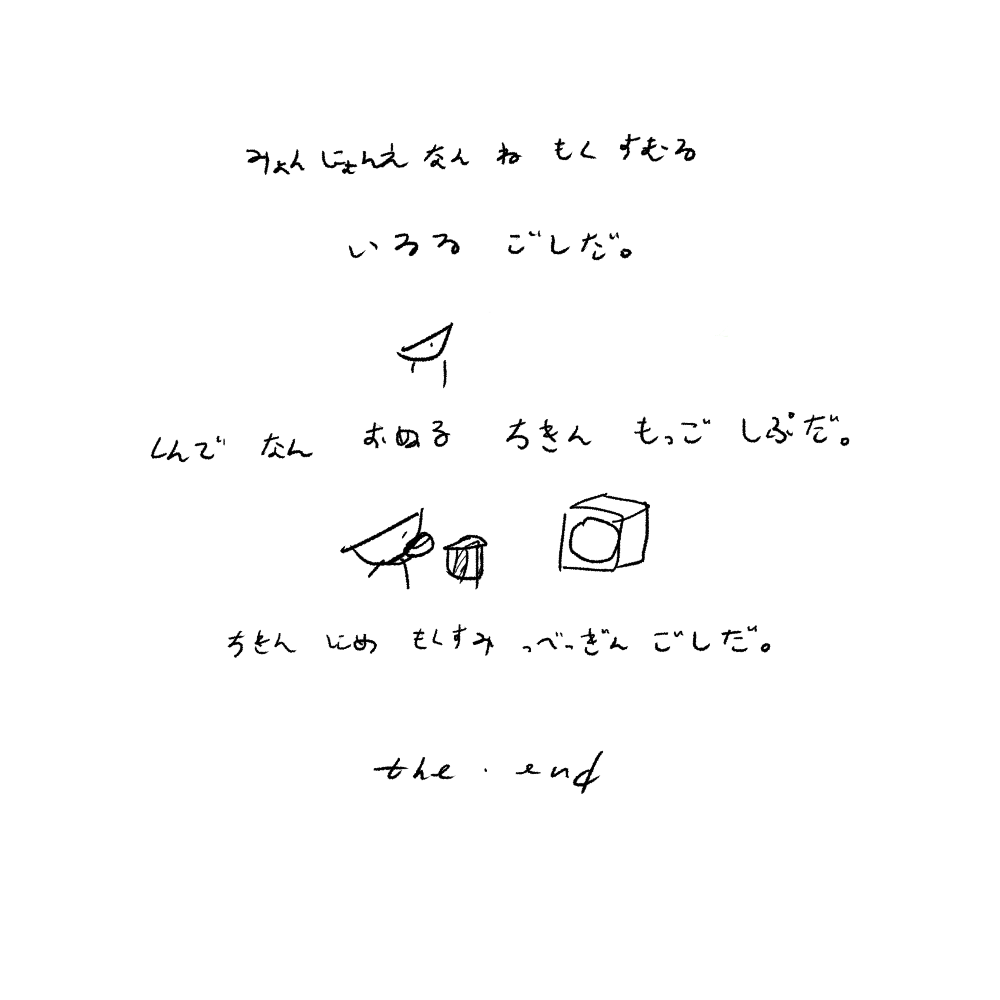 みょんじょんえ なん ね もく すむる
いろる ごしだ。
くんで なん おぬる ちきん もっご しぷだ。
ちきん じめ もくすみ っべっぎん ごしだ。
the . end